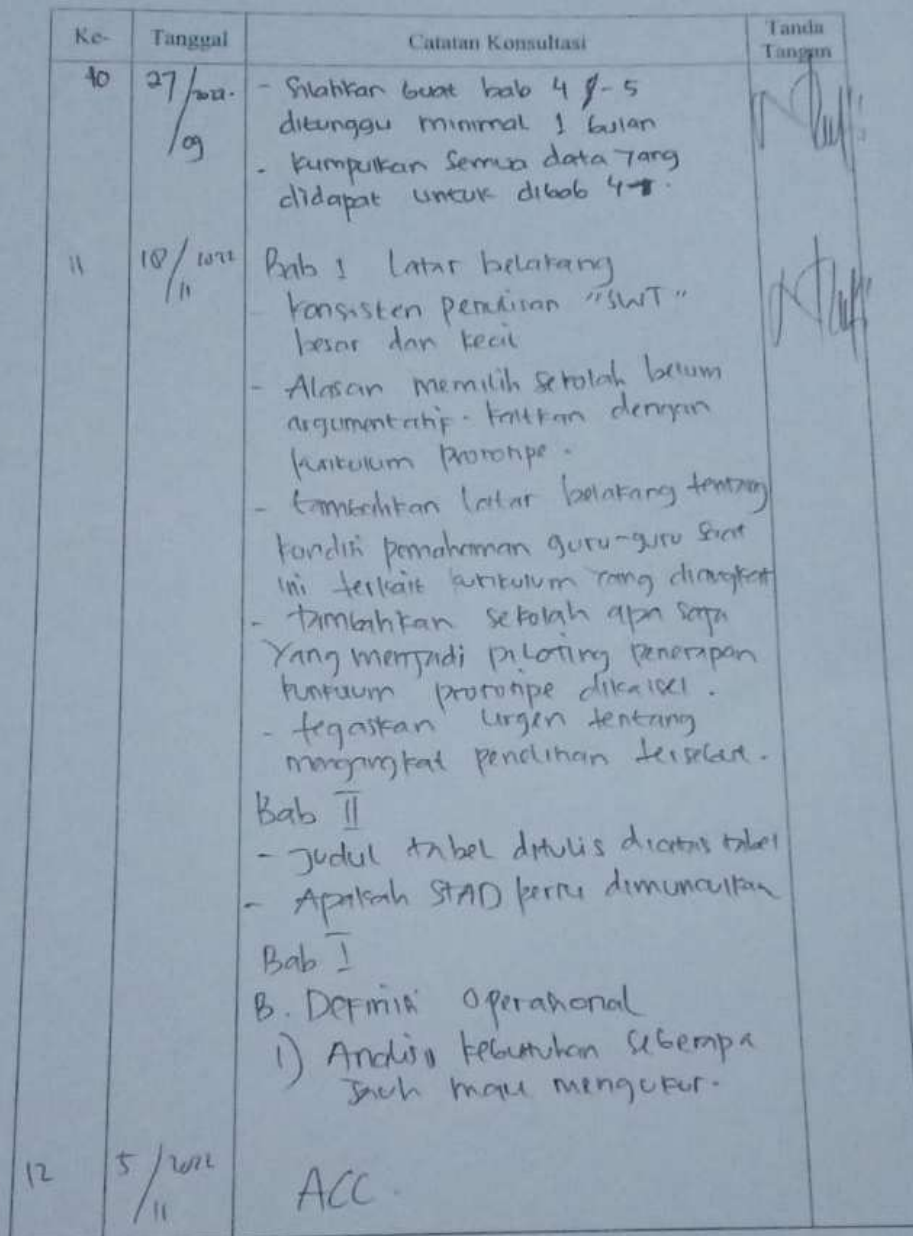 Ke- Tanggal Catatan Konsultasi Tanda Tangan
10 27/2022. - Silahkan buat bab 4 - 5
/09 ditunggu minimal 1 bulan
- kumpulkan semua data yang
didapat untuk dibab 4
11 10/2022 Bab 1 Latar belakang
/11 - konsisten penulisan "SWT"
besar dan kecil
- Alasan memilih sekolah belum
argumentatif - kaitkan dengan
kurikulum prototipe.
- tambahkan latar belakang tentang
kondisi pemahaman guru-guru saat
ini terkait kurikulum yang diangkat
- tambahkan sekolah apa saja
Yang menjadi piloting penerapan
kurikulum prototipe dikalsel.
- tegaskan urgen tentang
mengangkat penelitian tersebut.
Bab II
- Judul tabel ditulis diatas tabel
- Apakah STAD perlu dimunculkan
Bab I
B. Definisi Operasional
1) Analisis kebutuhan seberapa
Jauh mau mengukur.
12 5/2022 ACC.
/11